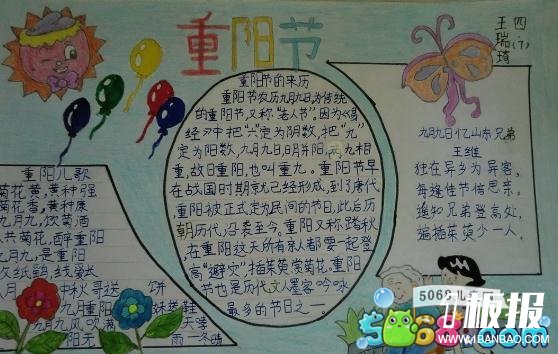 重阳节
四(7)
王瑞琦
重阳节的来历
重阳节农历九月九日,为传统
的重阳节,又称"老人节"。因为《易
经》中把"六"定为阴数,把"九"
定为阳数,九月九日,日月并阳,两九相
重,故曰重阳,也叫重九。重阳节早
在战国时期就已经形成,到了唐代
重阳被正式定为民间的节日,此后历
朝历代沿袭至今。重阳又称"踏秋"
在重阳这天所有亲人都要一起登
高"避灾",插茱萸、赏菊花。重阳
节也是历代文人墨客吟咏
最多的节日之一。
九月九日忆山东兄弟
王维
独在异乡为异客,
每逢佳节倍思亲。
遥知兄弟登高处,
遍插茱萸少一人。
重阳儿歌
菊花黄,黄种强
菊花香,黄种康
九月九,饮菊酒
人共菊花,醉重阳
九月九,是重阳
八月 中秋 寻送 饼
九月重阳
九月九,风吹满天
5068儿
5068.com
板报
www.1BANBAO.com